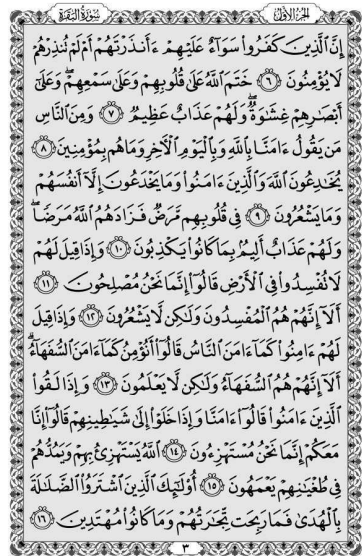 الجزء الأول
سورة البقرة
إِنَّ الَّذِينَ كَفَرُوا سَوَاءٌ عَلَيْهِمْ ءَأَنذَرْتَهُمْ أَمْ لَمْ تُنذِرْهُمْ
لَا يُؤْمِنُونَ ۝٦ خَتَمَ اللَّهُ عَلَىٰ قُلُوبِهِمْ وَعَلَىٰ سَمْعِهِمْ ۖ وَعَلَىٰ
أَبْصَارِهِمْ غِشَاوَةٌ ۖ وَلَهُمْ عَذَابٌ عَظِيمٌ ۝٧ وَمِنَ النَّاسِ
مَن يَقُولُ ءَامَنَّا بِاللَّهِ وَبِالْيَوْمِ الْآخِرِ وَمَا هُم بِمُؤْمِنِينَ ۝٨
يُخَادِعُونَ اللَّهَ وَالَّذِينَ ءَامَنُوا وَمَا يَخْدَعُونَ إِلَّا أَنفُسَهُمْ
وَمَا يَشْعُرُونَ ۝٩ فِي قُلُوبِهِم مَّرَضٌ فَزَادَهُمُ اللَّهُ مَرَضًا ۖ
وَلَهُمْ عَذَابٌ أَلِيمٌ بِمَا كَانُوا يَكْذِبُونَ ۝١٠ وَإِذَا قِيلَ لَهُمْ
لَا تُفْسِدُوا فِي الْأَرْضِ قَالُوا إِنَّمَا نَحْنُ مُصْلِحُونَ ۝١١
أَلَا إِنَّهُمْ هُمُ الْمُفْسِدُونَ وَلَٰكِن لَّا يَشْعُرُونَ ۝١٢ وَإِذَا قِيلَ
لَهُمْ ءَامِنُوا كَمَا ءَامَنَ النَّاسُ قَالُوا أَنُؤْمِنُ كَمَا ءَامَنَ السُّفَهَاءُ ۗ
أَلَا إِنَّهُمْ هُمُ السُّفَهَاءُ وَلَٰكِن لَّا يَعْلَمُونَ ۝١٣ وَإِذَا لَقُوا
الَّذِينَ ءَامَنُوا قَالُوا ءَامَنَّا وَإِذَا خَلَوْا إِلَىٰ شَيَاطِينِهِمْ قَالُوا إِنَّا
مَعَكُمْ إِنَّمَا نَحْنُ مُسْتَهْزِءُونَ ۝١٤ اللَّهُ يَسْتَهْزِئُ بِهِمْ وَيَمُدُّهُمْ
فِي طُغْيَانِهِمْ يَعْمَهُونَ ۝١٥ أُولَٰئِكَ الَّذِينَ اشْتَرَوُا الضَّلَالَةَ
بِالْهُدَىٰ فَمَا رَبِحَت تِّجَارَتُهُمْ وَمَا كَانُوا مُهْتَدِينَ ۝١٦
٣